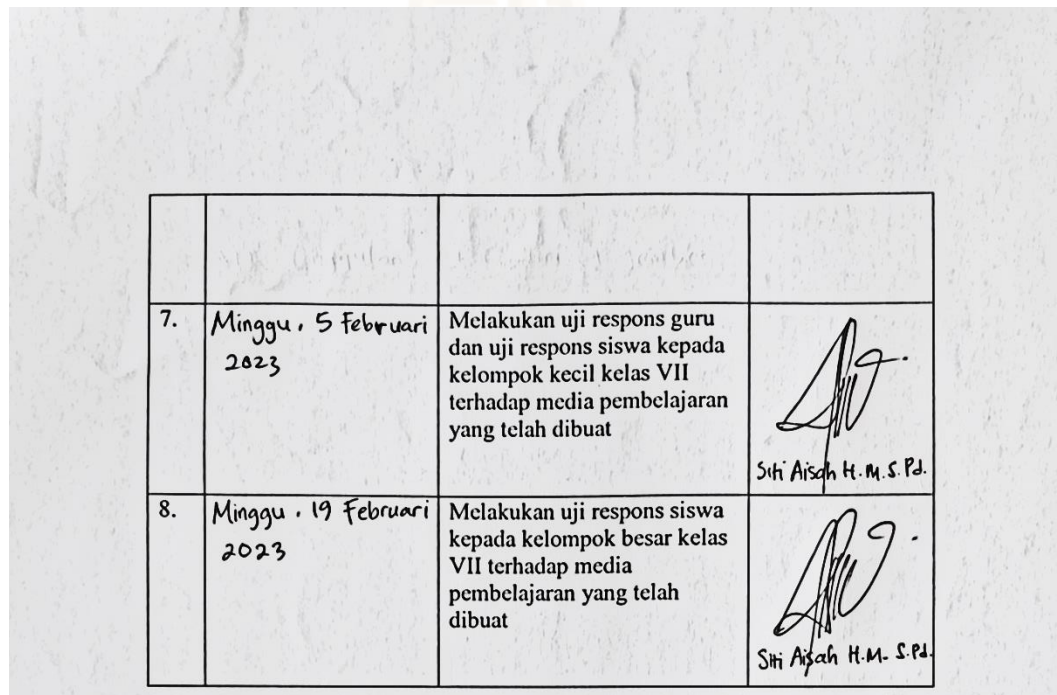 7.
Minggu, 5 Februari
2023
Melakukan uji respons guru
dan uji respons siswa kepada
kelompok kecil kelas VII
terhadap media pembelajaran
yang telah dibuat
Siti Aisah H.M.S.Pd.
8.
Minggu, 19 Februari
2023
Melakukan uji respons siswa
kepada kelompok besar kelas
VII terhadap media
pembelajaran yang telah
dibuat
Siti Aisah H.M. S.Pd.